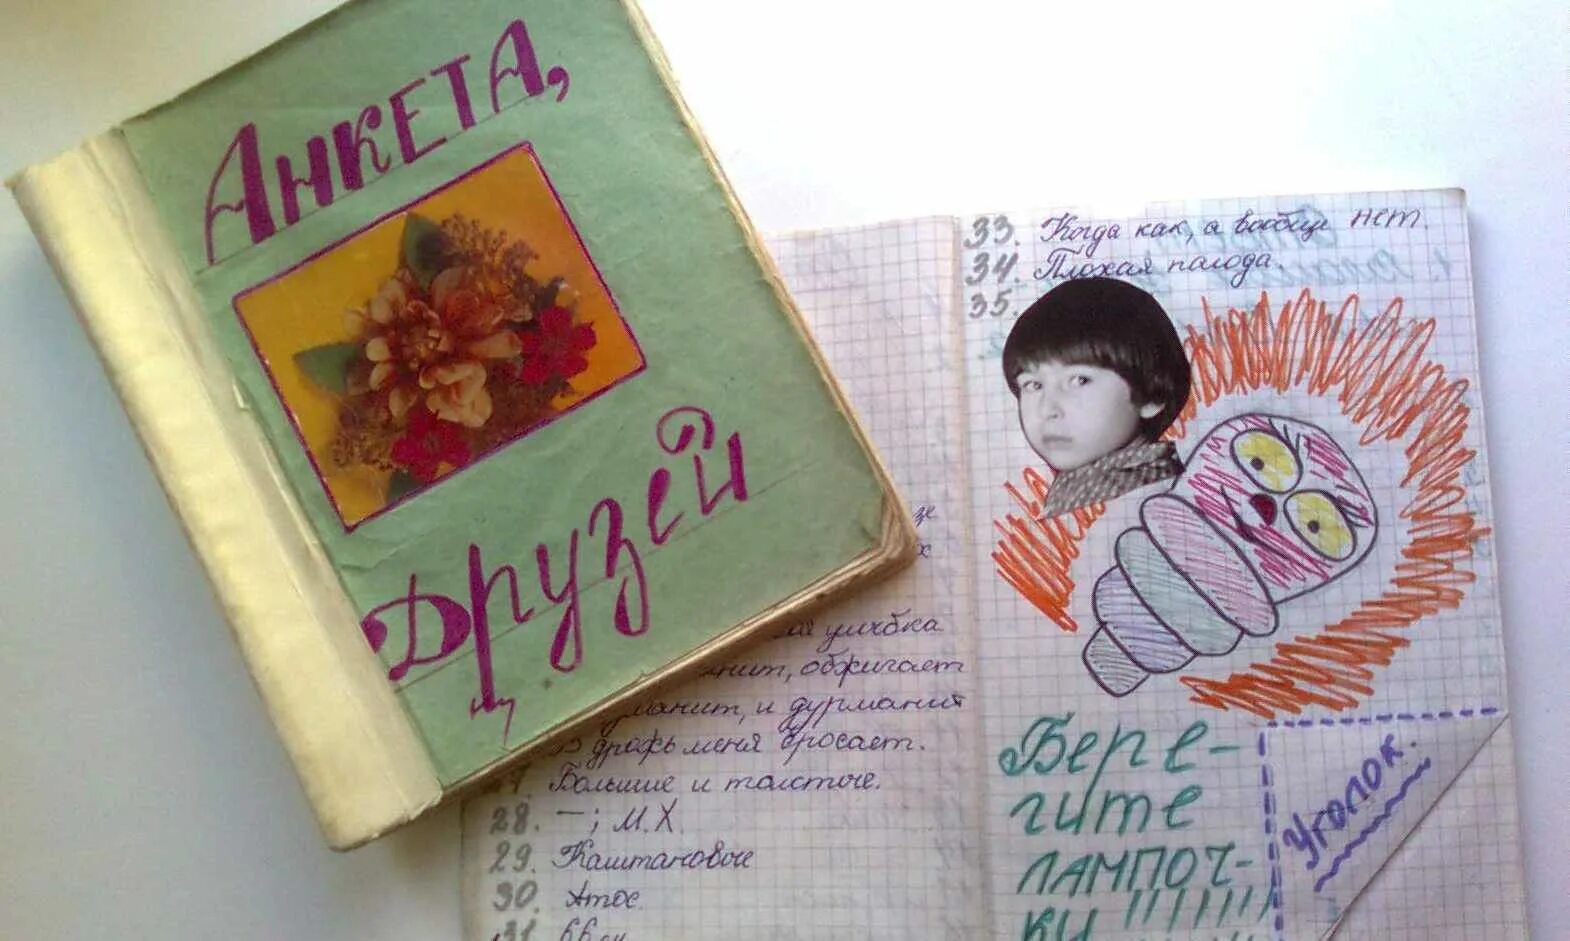 АНКЕТА,
ДРУЗЕЙ
улыбка
обжигает
и дурманит
В дрожь меня бросает.
27. Большие и толстые.
28. —; М.Х.
29. Каштановые
30. Атос.
31.
33. Когда как, а вообще нет.
34. Плохая погода.
35.
Бере-
гите
ЛАМПОЧ-
КИ !!!!!!!
Уголок.